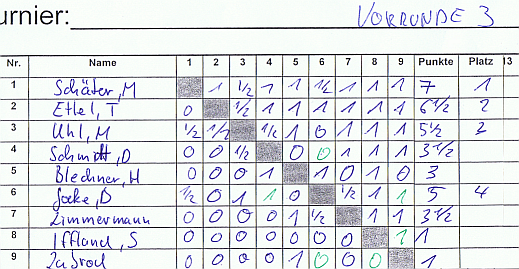 urnier: VORRUNDE 3
Nr. Name 1 2 3 4 5 6 7 8 9 Punkte Platz 13
1 Schäfer, M 1 1/2 1 1 1/2 1 1 1 7 1
2 Ettel, T 0 1/2 1 1 1 1 1 1 6 1/2 2
3 Uhl, M 1/2 1/2 1/2 1 0 1 1 1 5 1/2 3
4 Schmitt, D 0 0 1/2 0 0 1 1 1 3 1/2
5 Blechner, H 0 0 0 1 1 0 1 0 3
6 Jocke, D 1/2 0 1 1 0 1/2 1 1 5 4
7 Zimmermann 0 0 0 0 1 1/2 1 1 3 1/2
8 Iffland, S 0 0 0 0 0 0 0 1 1
9 0 0 0 0 1 0 0 0 1